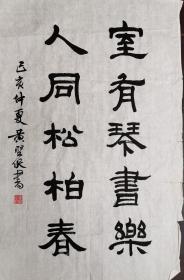 室有琴書樂
人同松柏春
己亥仲夏黄堅俠書